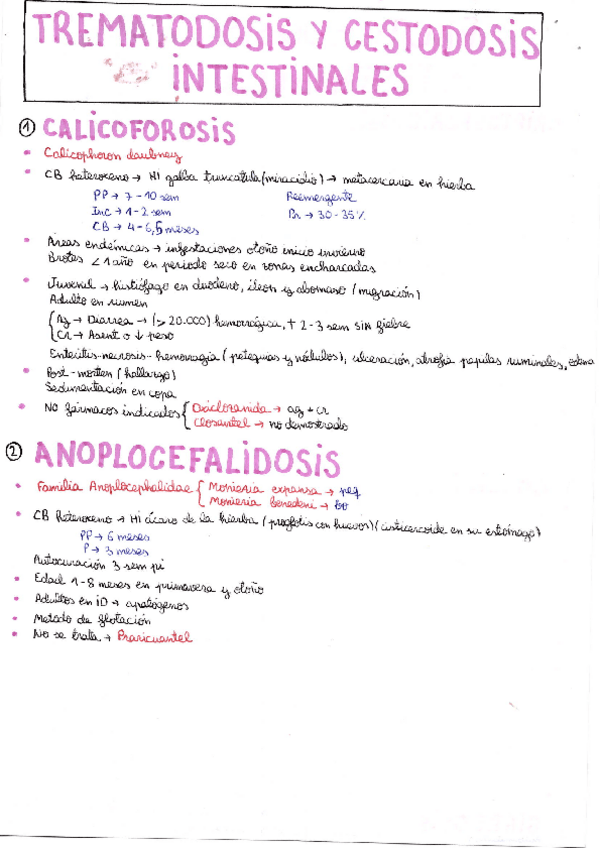 TREMATODOSIS Y CESTODOSIS
INTESTINALES
① CALICOFOROSIS
• Calicophoron daubneyi
• CB heteroxeno → HI galba truncatula (miracidio) → metacercaria en hierba
PP → 7 - 10 sem Reemergente
Inc → 1 - 2 sem Pr → 30 - 35 %
CB → 4 - 6,5 meses
• Áreas endémicas → infestaciones otoño inicio invierno
Brotes < 1 año en periodo seco en zonas encharcadas
• Juvenil → histiófago en duodeno, íleon y abomaso (migración)
Adulto en rumen
{ Ag → Diarrea → (> 20.000) hemorrágica, † 2 - 3 sem sin fiebre
{ Cr → Asint o ↓ peso
Enteritis-necrosis-hemorragia (petequias y nódulos), ulceración, atrofia papilas ruminales, edema
• Post-morten (hallazgo)
Sedimentación en copa
• No fármacos indicados { Oxicloranida → ag + cr
Closantel → no demostrado
② ANOPLOCEFALIDOSIS
• Familia Anoplocephalidae { Moniezia expansa → peq
Moniezia benedeni → bo
• CB heteroxeno → HI ácaro de la hierba (proglotis con huevos) (cisticercoide en su estómago)
PP → 6 meses
P → 3 meses
Autocuración 3 sem pi
• Edad 1 - 8 meses en primavera y otoño
• Adultos en ID → apatógenos
• Metodo de flotación
• No se trata → Prazicuantel